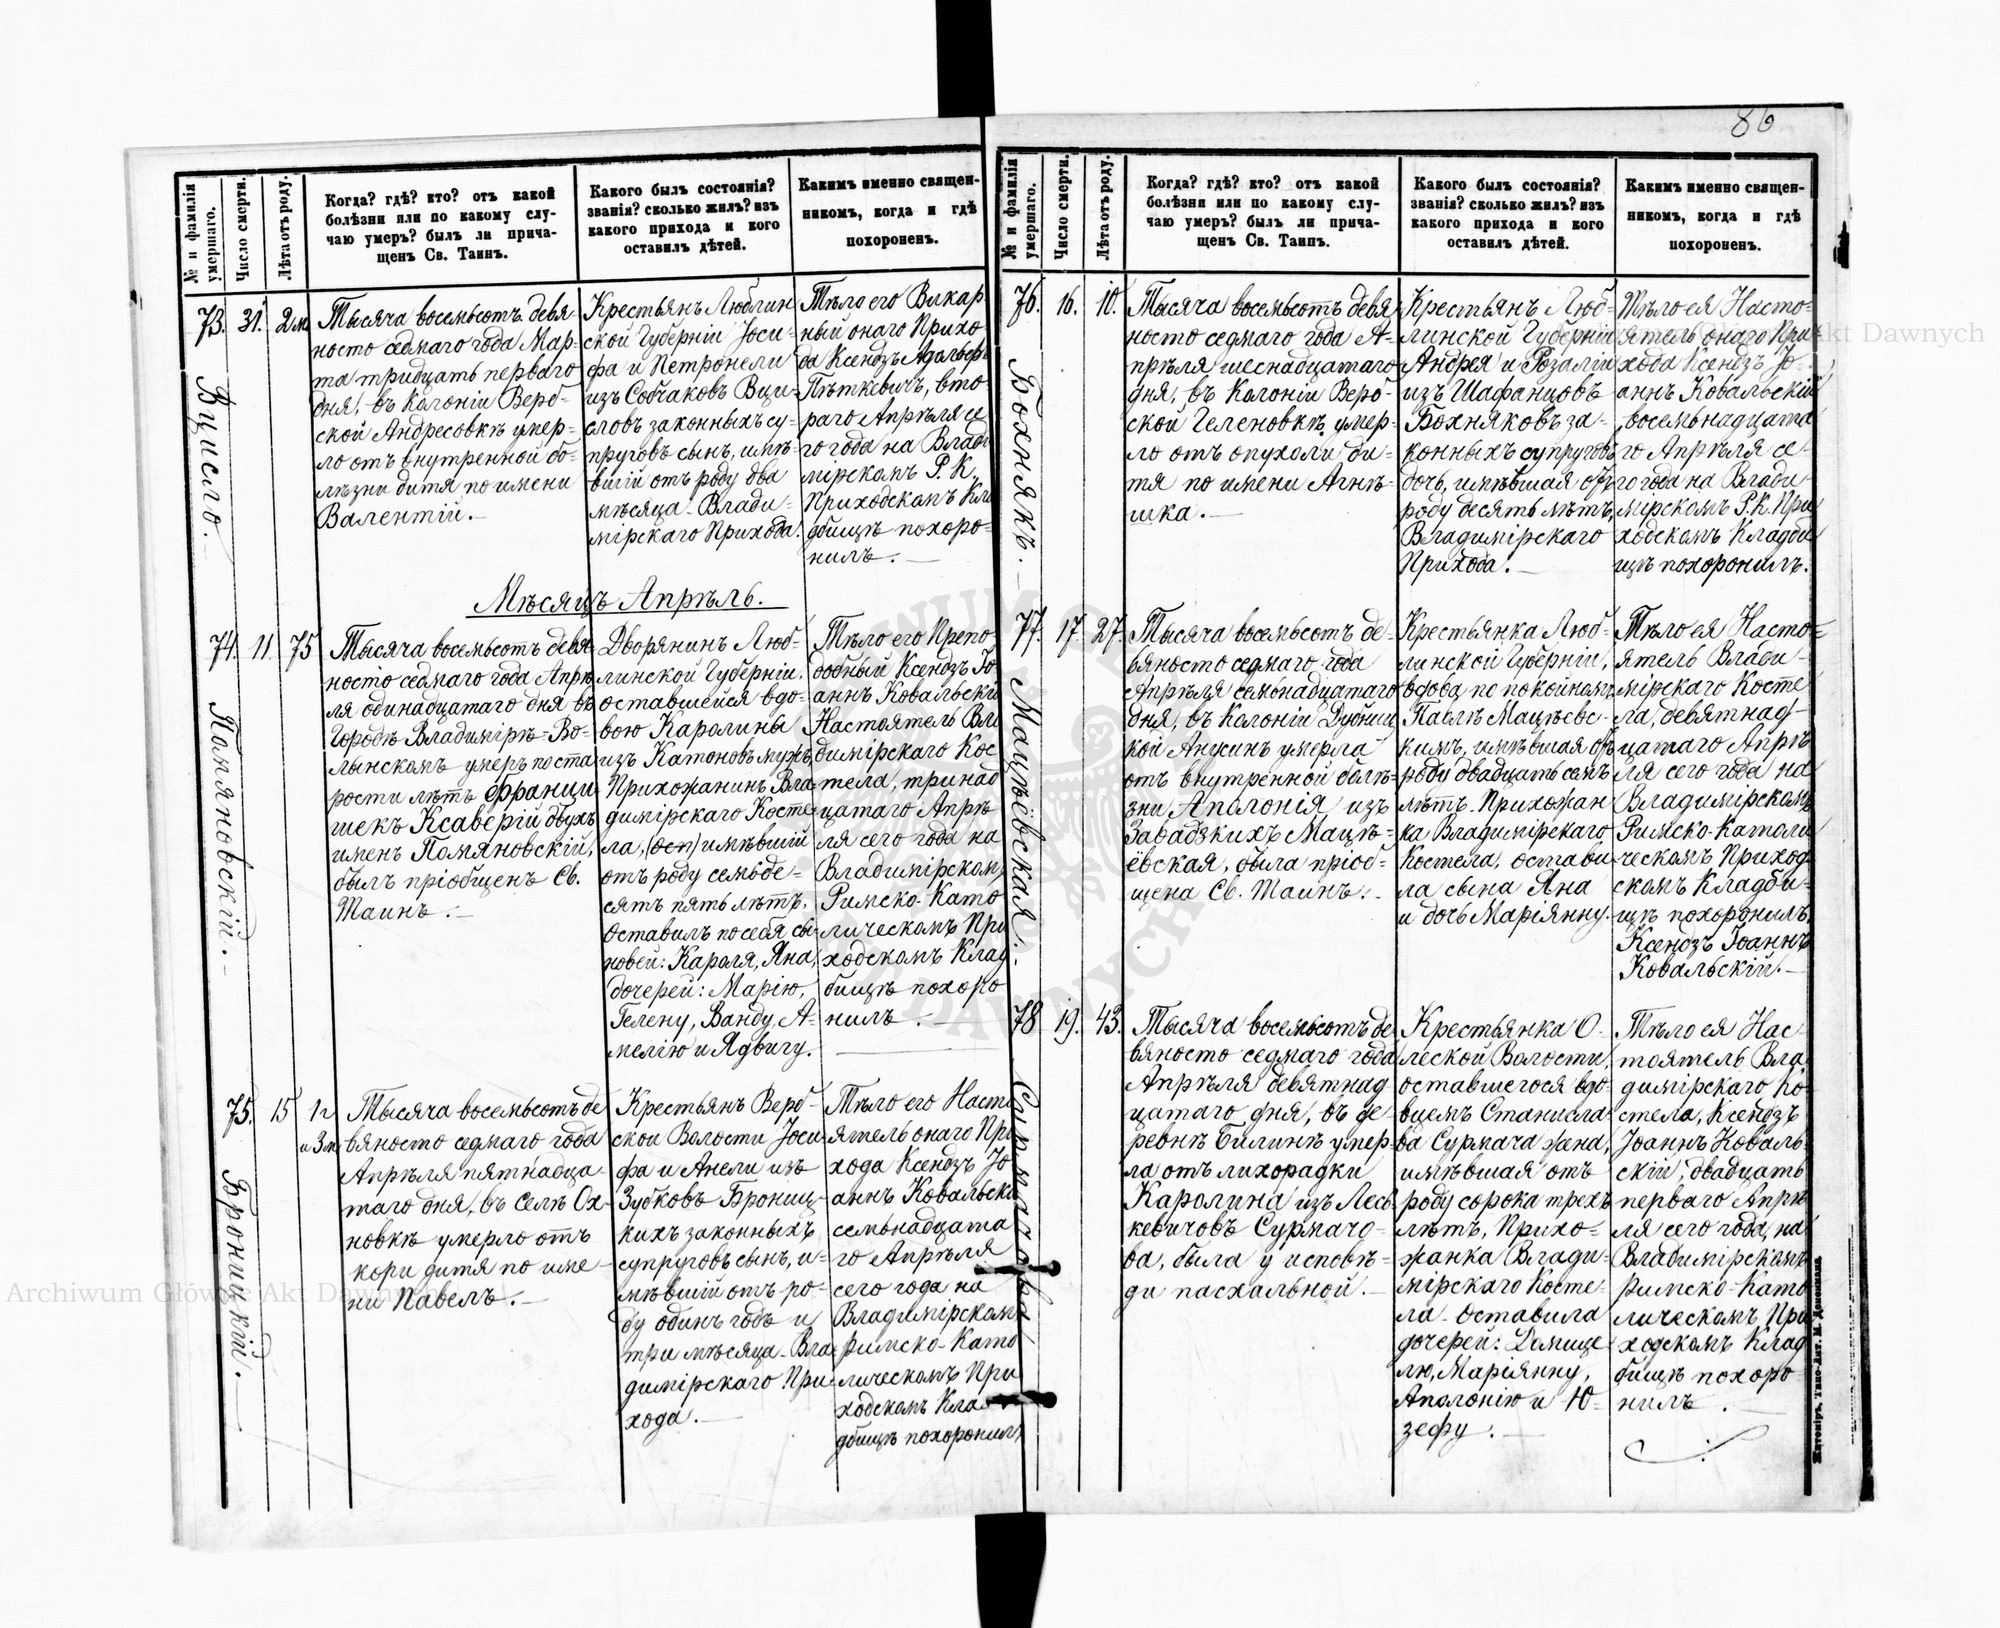 86
№ и фамилія умершаго.
Число смерти.
Лѣта отъ роду.
Когда? гдѣ? кто? отъ какой
болѣзни или по какому слу-
чаю умеръ? былъ ли прича-
щенъ Св. Таинъ.
Какого былъ состоянія?
званія? сколько жилъ? изъ
какого прихода и кого
оставилъ дѣтей.
Какимъ именно священ-
никомъ, когда и гдѣ
похороненъ.
73. 31. 2 м
Вцисло.
Тысяча восемьсотъ девя-
носто седмаго года Мар-
та тридцать перваго
дня, въ Колоніи Верб-
ской Андресовкѣ умер-
ло отъ внутренной бо-
лѣзни дитя по имени
Валентій.
Крестьянъ Люблин
ской Губерніи Іоси-
фа и Петронели
изъ Собчаковъ Вци-
словъ законныхъ су-
пруговъ сынъ, имѣ-
вшій отъ роду два
мѣсяца. Влади-
мірскаго Прихода.
Тѣло его Викар
ный онаго Прихо
да Ксендзъ Адольфъ
Пѣткевичъ, вто-
раго Апрѣля се
го года на Влади
мірскомъ Р. К.
Приходскомъ Кла
дбищѣ похоро-
нилъ.
Мѣсяцъ Апрѣль.
74. 11. 75
Помяновскій.
Тысяча восемьсотъ девя-
носто седмаго года Апрѣ
ля одинадцатаго дня въ
Городѣ Владимірѣ-Во-
лынскомъ умеръ по ста
рости лѣтъ Франци-
шекъ Ксаверій двухъ
именъ Помяновскій,
былъ пріобщенъ Св.
Таинъ.
Дворянинъ Люб-
линской Губерніи,
оставшейся вдо-
вою Каролины
изъ Катоновъ мужъ,
Прихожанинъ Вла
димірскаго Косте
ла, (ост) имѣвшій
отъ роду семьде-
сятъ пять лѣтъ.
Оставилъ по себѣ сы-
новей: Кароля, Яна,
дочерей: Марію,
Гелену, Ванду, А-
мелію и Ядвигу.
Тѣло его Препо-
добный Ксендзъ Іо
аннъ Ковальскій
Настоятель Вла
димірскаго Кос
тела, тринад
цатаго Апрѣ
ля сего года на
Владимірскомъ
Римско-Като
лическомъ При
ходскомъ Клад
бищѣ похоро
нилъ.
75. 15 1 г
и 3 м
Броницкій.
Тысяча восемьсотъ де
вяносто седмаго года
Апрѣля пятнадца-
таго дня, въ Селѣ Ох-
новкѣ умерло отъ
кори дитя по име-
ни Павелъ.
Крестьянъ Верб-
ской Волости Іоси-
фа и Анели изъ
Зубковъ Брониц-
кихъ законныхъ
супруговъ сынъ, и-
мѣвшій отъ ро-
ду одинъ годъ и
три мѣсяца. Вла
димірскаго При-
хода.
Тѣло его Насто
ятель онаго При
хода Ксендзъ Іо
аннъ Ковальскій
семьнадцата
го Апрѣля
сего года на
Владимірскомъ
Римско-Като
лическомъ При
ходскомъ Кла
дбищѣ похоронилъ
№ и фамилія умершаго.
Число смерти.
Лѣта отъ роду.
Когда? гдѣ? кто? отъ какой
болѣзни или по какому слу-
чаю умеръ? былъ ли прича-
щенъ Св. Таинъ.
Какого былъ состоянія?
званія? сколько жилъ? изъ
какого прихода и кого
оставилъ дѣтей.
Какимъ именно священ-
никомъ, когда и гдѣ
похороненъ.
76. 16. 10.
Бохнякъ.
Тысяча восемьсотъ девя
носто седмаго года А-
прѣля шеснадцатаго
дня, въ Колоніи Верб-
ской Геленовкѣ, умер-
ло отъ опухоли ди-
тя по имени Агнѣ-
шка.
Крестьянъ Люб-
линской Губерніи
Андрея и Розаліи
изъ Шафанцовъ
Бохняковъ за-
конныхъ супруговъ
дочь, имѣвшая отъ
роду десять лѣтъ,
Владимірскаго
Прихода.
Тѣло ея Насто-
ятель онаго При
хода Ксендзъ Іо-
аннъ Ковальскій
восемьнадцата
го Апрѣля се-
го года на Влади-
мірскомъ Р. К. При
ходскомъ Кладби
щѣ похоронилъ.
77. 17. 27.
Мацѣёвская.
Тысяча восемьсотъ де-
вяносто седмаго года
Апрѣля семьнадцатаго
дня, въ Колоніи Дубниц
кой Анусинъ умерла
отъ внутренной болѣ-
зни Аполонія изъ
Завадзкихъ Мацѣ-
ёвская, была пріоб-
щена Св. Таинъ.
Крестьянка Люб-
линской Губерніи,
вдова по покойномъ
Павлѣ Мацѣевс-
кимъ, имѣвшая отъ
роду двадцать семь
лѣтъ. Прихожан
ка Владимірскаго
Костела, остави
ла сына Яна
и дочь Маріянну.
Тѣло ея Насто-
ятель Влади-
мірскаго Косте
ла, девятнад-
цатаго Апрѣ
ля сего года на
Владимірскомъ
Римско-Католи
ческомъ Приход-
скомъ Кладби-
щѣ похоронилъ,
Ксендзъ Іоаннъ
Ковальскій.
78 19. 43.
Сурмачова
Тысяча восемьсотъ де
вяносто седмаго года
Апрѣля девятнад
цатаго дня, въ де
ревнѣ Билинѣ умер-
ла отъ лихорадки
Каролина изъ Лесь
кевичовъ Сурмачо-
ва, была у исповѣ-
ди пасхальной.
Крестьянка О-
леской Волости,
оставшегося вдо-
вцемъ Станисла-
ва Сурмача жена,
имѣвшая отъ
роду сорока трехъ
лѣтъ, Прихо-
жанка Влади-
мірскаго Косте-
ла. Оставила
дочерей: Доміце
лю, Маріянну,
Аполонію и Ю-
зефу.
Тѣло ея Нас
тоятель Вла
димірскаго Ко-
стела, Ксендзъ
Іоаннъ Коваль-
скій, двадцать
перваго Апрѣ
ля сего года, на
Владимірскомъ
Римско-Като
лическомъ При
ходскомъ Клад
бищѣ похоро-
нилъ.
Житомиръ, Типо-Лит. М. Дененмана
Archiwum Główne Akt Dawnych